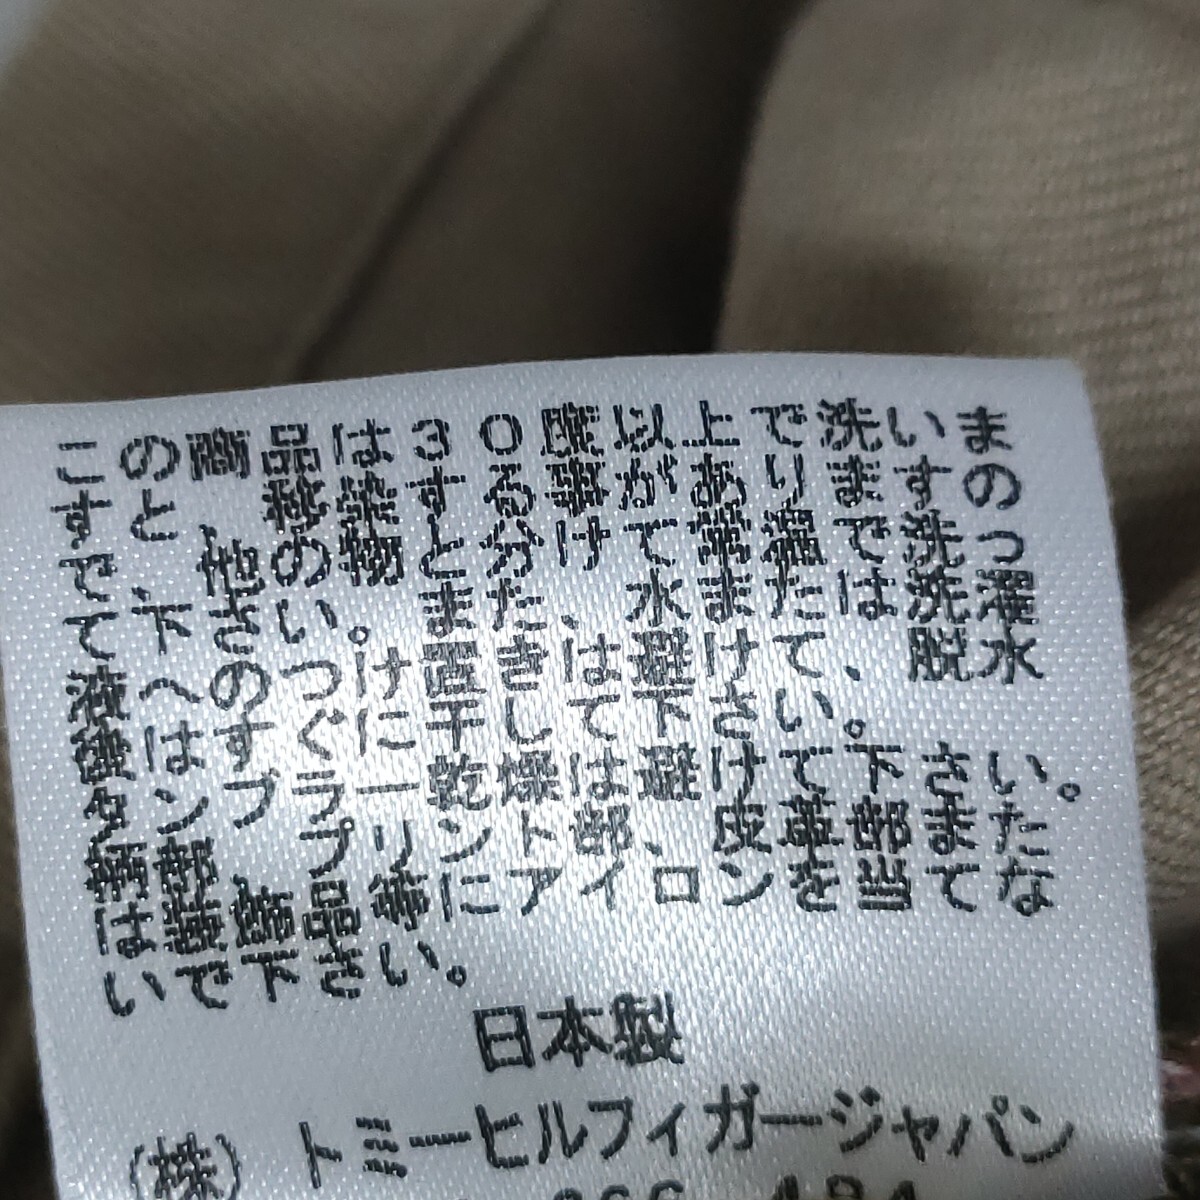 この商品は30度以上で洗いま
すと、移染する事がありますの
で、他の物と分けて常温で洗っ
て下さい。また、水または洗濯
液へのつけ置きは避けて、脱水
後はすぐに干して下さい。
タンブラー乾燥は避けて下さい。
柄部、プリント部、皮革部また
は装飾品等にアイロンを当てな
いで下さい。
日本製
(株)トミーヒルフィガージャパン